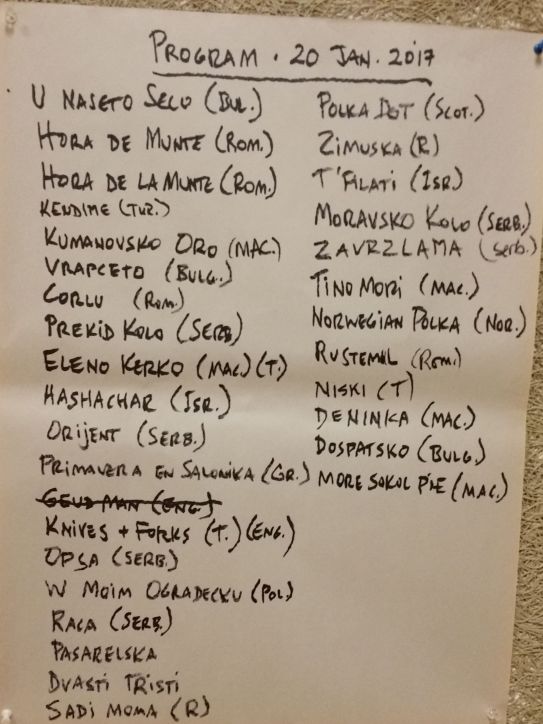 PROGRAM . 20 JAN. 2017
U NASETO SELO (BUL.)
HORA DE MUNTE (ROM.)
HORA DE LA MUNTE (ROM.)
KENDIME (TUR.)
KUMANOVSKO ORO (MAC.)
VRAPCETO (BULG.)
CORLU (ROM.)
PREKID KOLO (SERB)
ELENO KERKO (MAC.) (T.)
HASHACHAR (ISR.)
ORIJENT (SERB.)
PRIMAVERA EN SALONIKA (GR.)
GEUD MAN (ENG.)
KNIVES + FORKS (T.) (ENG.)
OPSA (SERB.)
W MOIM OGRADECKU (POL)
RACA (SERB.)
PASARELSKA
DVASTI TRISTI
SADI MOMA (R)
POLKA DOT (SCOT.)
ZIMUSKA (R)
T'FILATI (ISR.)
MORAVSKO KOLO (SERB.)
ZAVRZLAMA (Serb.)
TINO MORI (MAC.)
NORWEGIAN POLKA (NOR.)
RUSTEMUL (ROM.)
NISKI (T)
DENINKA (MAC.)
DOSPATSKO (BULG.)
MORE SOKOL PIE (MAC.)